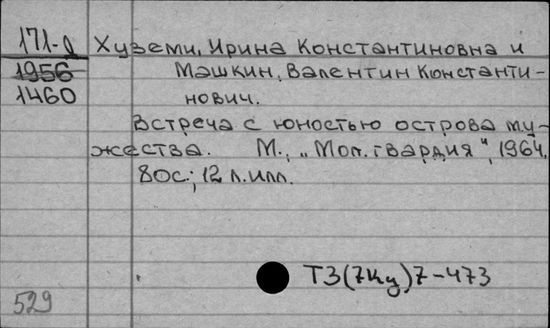 171-д Хуземи, Ирина Константиновна и
1956 Машкин, Валентин Константи-
1460 нович.
Встреча с юностью острова му-
жества. М., „Мол. гвардия“, 1964.
80с.; 12 л. илл.
Т3(7Ку)7-473
529